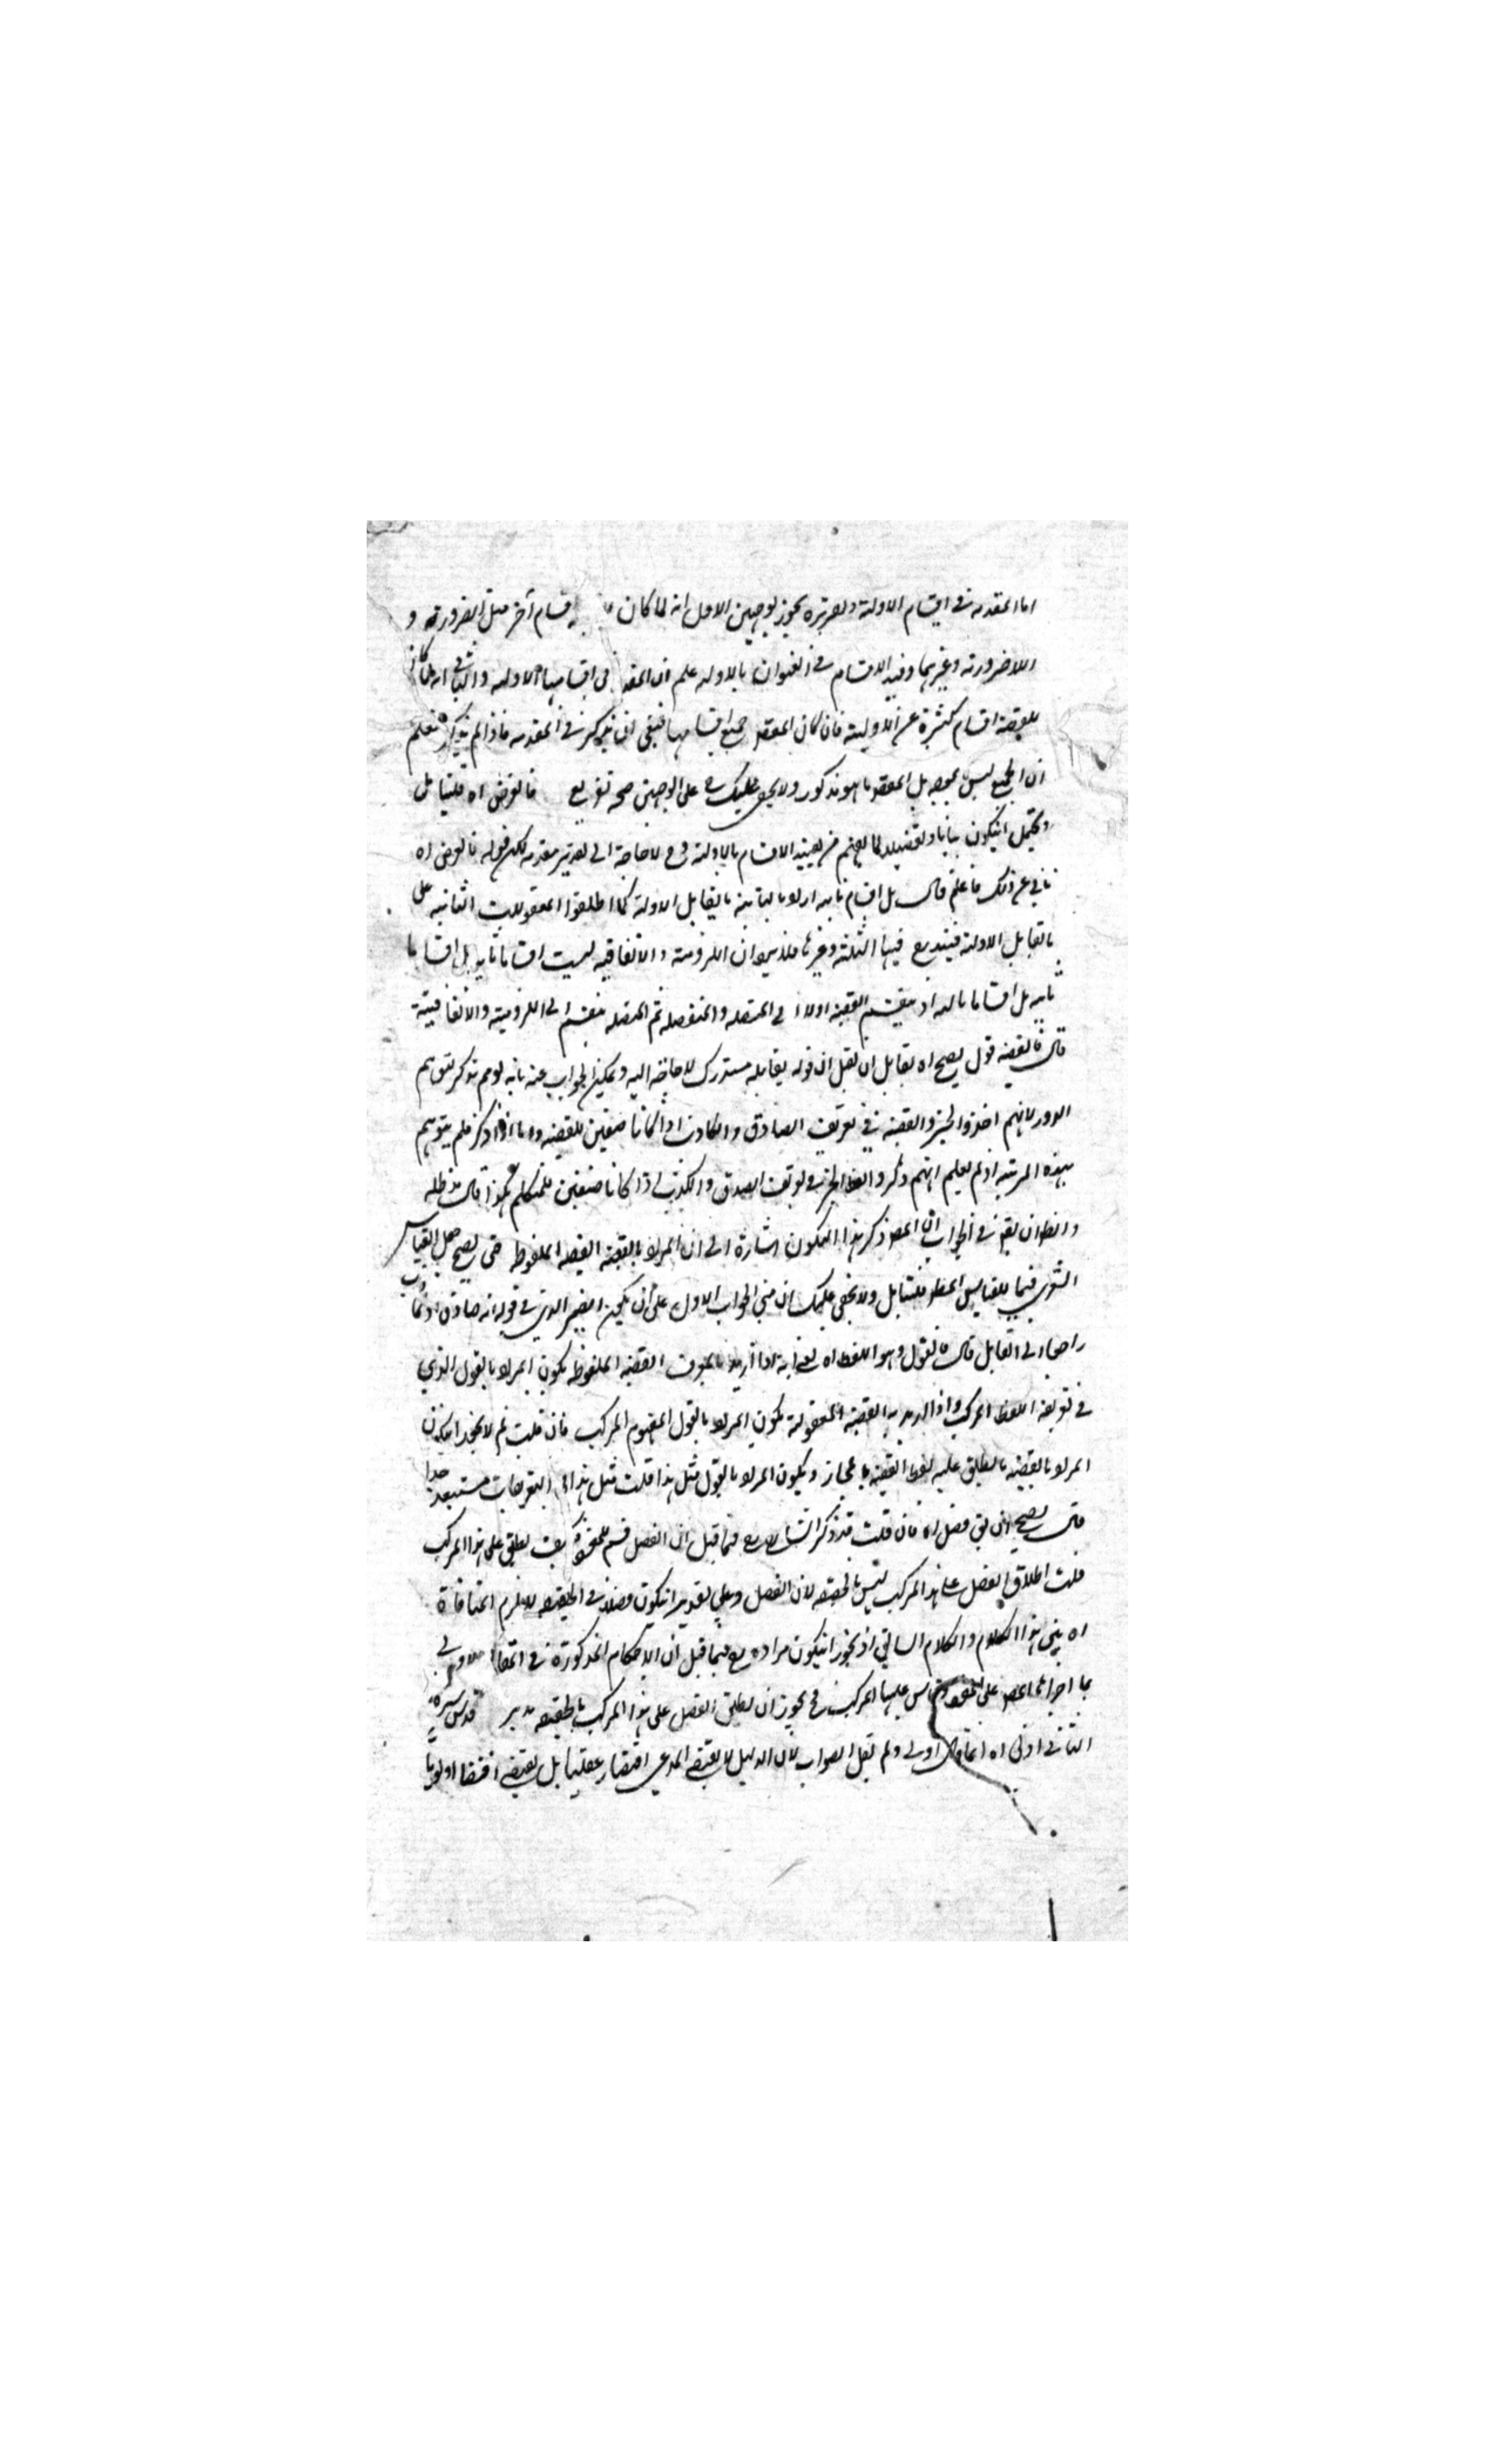 اما المقدمه فى اقسام الاولية وتصريره يجوز بوجهين الاول انه لما كان اقسام آخر مثل الضرورية و
اللاضرورية وغيرهما وقيد الاقسام فى العنوان بالاوليه علم ان المقدمة فى اقسامها الاوليه والثانى انه لما كان
للقضية اقسام كثيرة غير الاولية فان كان المقصود جميع اقسامها فينبغى ان يذكر فى المقدمه فاذا لم يذكر تعلم
ان الجميع ليس بمقصود بل المقصود ما هو مذكور ولا يخفى عليك على الوجهين صحة تفريع فالغرض اه فليتأمل
ويحتمل ان يكون بيانا وتفصيلا لما يفهم من تقييد الاقسام بالاولية وح لا حاجة الى تقدير مقدمه لكن قوله فالغرض اه
ينافى عن ذلك فاعلم قال بل اقسام ثانيه اراد بالثانية ما يقابل الاولية كما اطلقوا المعقولات الثانيه على
ما تقابل الاولية فيندرج فيها الثالثة وغيرها فلا يرد ان اللزومية والاتفاقيه ليست اقساما ثانيه بل اقساما
ثانيه بل اقساما ثالثه اذ ينقسم القضية اولا الى المتصله والمنفصله ثم المتصله ينقسم الى اللزومية والاتفاقية
قال فالقضيه قول يصح اه لقايل ان يقول ان قوله لقايله مستدرك لا حاجة اليه ويمكن الجواب عنه بانه لو لم يذكر يتوهم
الدور لانهم اخذوا الخبر والقضية فى تعريف الصادق والكاذب اذا كانا صفتين للقضيه واما اذا ذكر فلم يتوهم
بهذه المرتبه اذ لم يعلم انهم ذكروا لفظ الخبر فى تعريف الصدق والكذب اذا كانا صفتين للمتكلم هكذا قال مد ظله
والظ ان يقال فى الجواب ان المص ذكر هذا ليكون اشارة الى ان المراد بالقضية القضيه الملفوظه حتى يصح جعل القياس
الشعرى قياسا فليتأمل ولا يخفى عليك ان مبنى الجواب الاول على ان يكون الضمير الذى فى قوله انه صادق او كاذب
راجعا الى القايل قال فالقول وهو اللفظ اه يعنى انه اذا اريد بالمعرف القضيه الملفوظه يكون المراد بالقول الذى
فى تعريفه اللفظ المركب واذا اريد به القضيه المعقولة يكون المراد بالقول المفهوم المركب فان قلت لم لا يجوز ان يكون
المراد بالقضيه ما يطلق عليه لفظ القضيه بالمجاز ويكون المراد بالقول مثل هذا قلت مثل هذا فى التعريفات مستبعد جدا
قال يصح ان يق فصل اه فان قلت قد ذكر الشارح فيما قبل ان الفصل قسم للمفرد فكيف يطلق على هذا المركب
قلت اطلاق الفصل على هذا المركب ليس بالحقيقه لان الفصل وعلى تقدير ان يكون فصلا فى الحقيقه لا يلزم المنافاة
اه بين هذا الكلام والكلام السابق اذ يجوز ان يكون مراده مع فيما قبل ان الاحكام المذكورة فى المقالة الاولى
مما اجراها المص على المفرد وقاس عليها المركب فح يجوز ان يطلق الفصل على هذا المركب بالحقيقه تدبر قدس سره
الثانى اولى اه انما قال اولى ولم يقل الصواب لان الدليل لا يقتضى المدعى اقتضاء عقليا بل يقتضيه اقتضاء اولويا